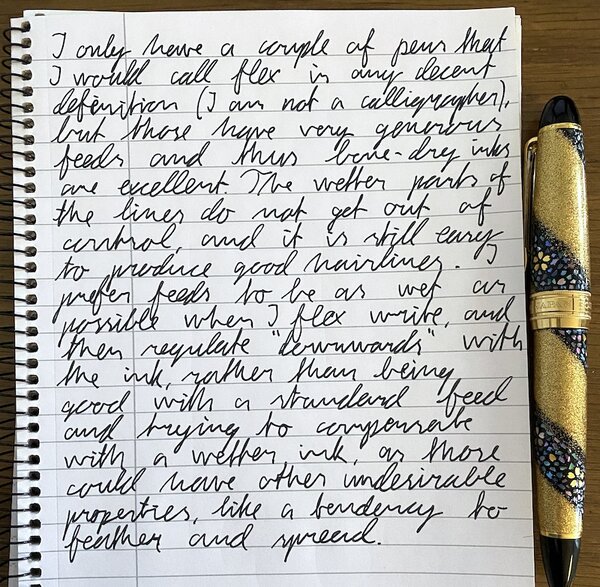 I only have a couple of pens that
I would call flex in any decent
definition (I am not a calligrapher),
but those have very generous
feeds and thus bone-dry inks
are excellent. The wetter parts of
the lines do not get out of
control, and it is still easy
to produce good hairlines. I
prefer feeds to be as wet as
possible when I flex write, and
then regulate "downwards" with
the ink, rather than being
good with a standard feed
and trying to compensate
with a wetter ink, as those
could have other undesirable
properties, like a tendency to
feather and spread.